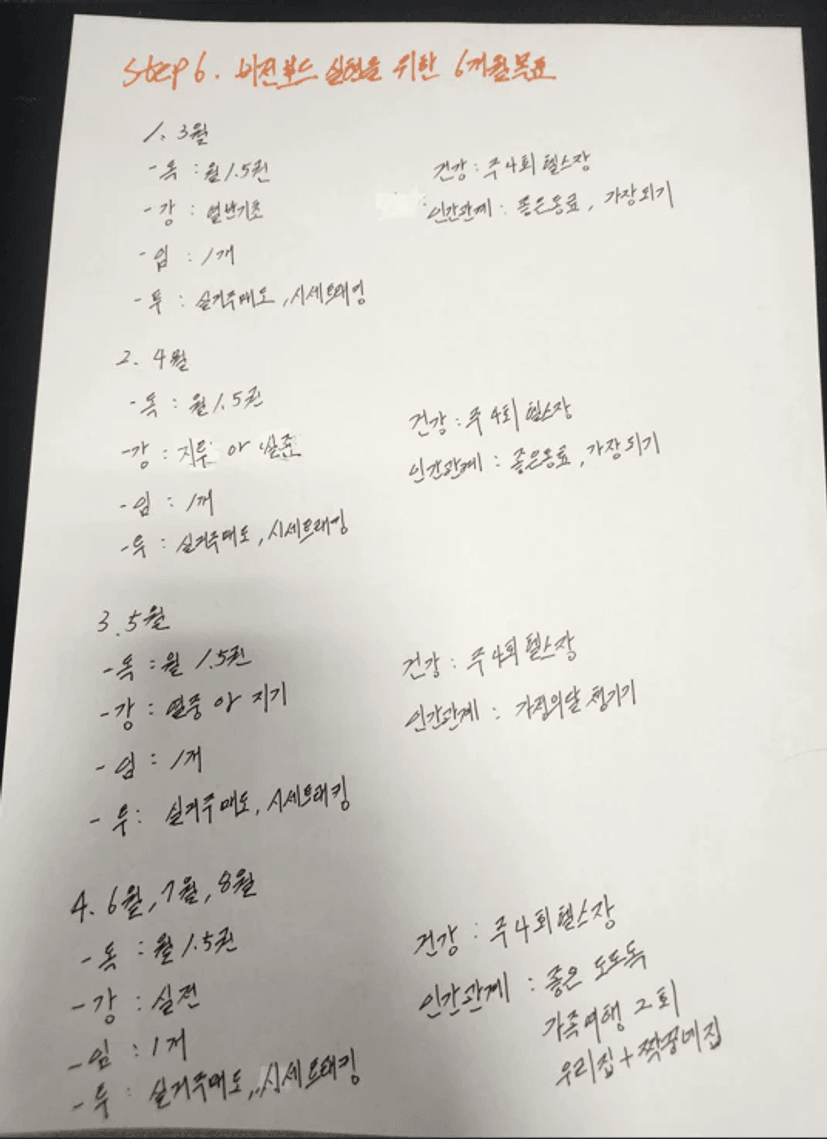 Step 6. 비전보드 실현을 위한 6개월목표
1. 3월
- 독 : 월 1.5권
- 강 : 열반기초
- 임 : 1개
- 투 : 실거주매도, 시세트래킹
건강 : 주4회 헬스장
인간관계 : 좋은동료, 가장되기
2. 4월
- 독 : 월 1.5권
- 강 : 지투 or 실준
- 임 : 1개
- 투 : 실거주매도, 시세트래킹
건강 : 주 4회 헬스장
인간관계 : 좋은동료, 가장되기
3. 5월
- 독 : 월 1.5권
- 강 : 열중 or 지기
- 임 : 1개
- 투 : 실거주매도, 시세트래킹
건강 : 주4회 헬스장
인간관계 : 가정의달 챙기기
4. 6월, 7월, 8월
- 독 : 월 1.5권
- 강 : 실전
- 임 : 1개
- 투 : 실거주매도, 시세트래킹
건강 : 주4회 헬스장
인간관계 : 좋은
가족여행 2회
우리집 + 짝꿍네집